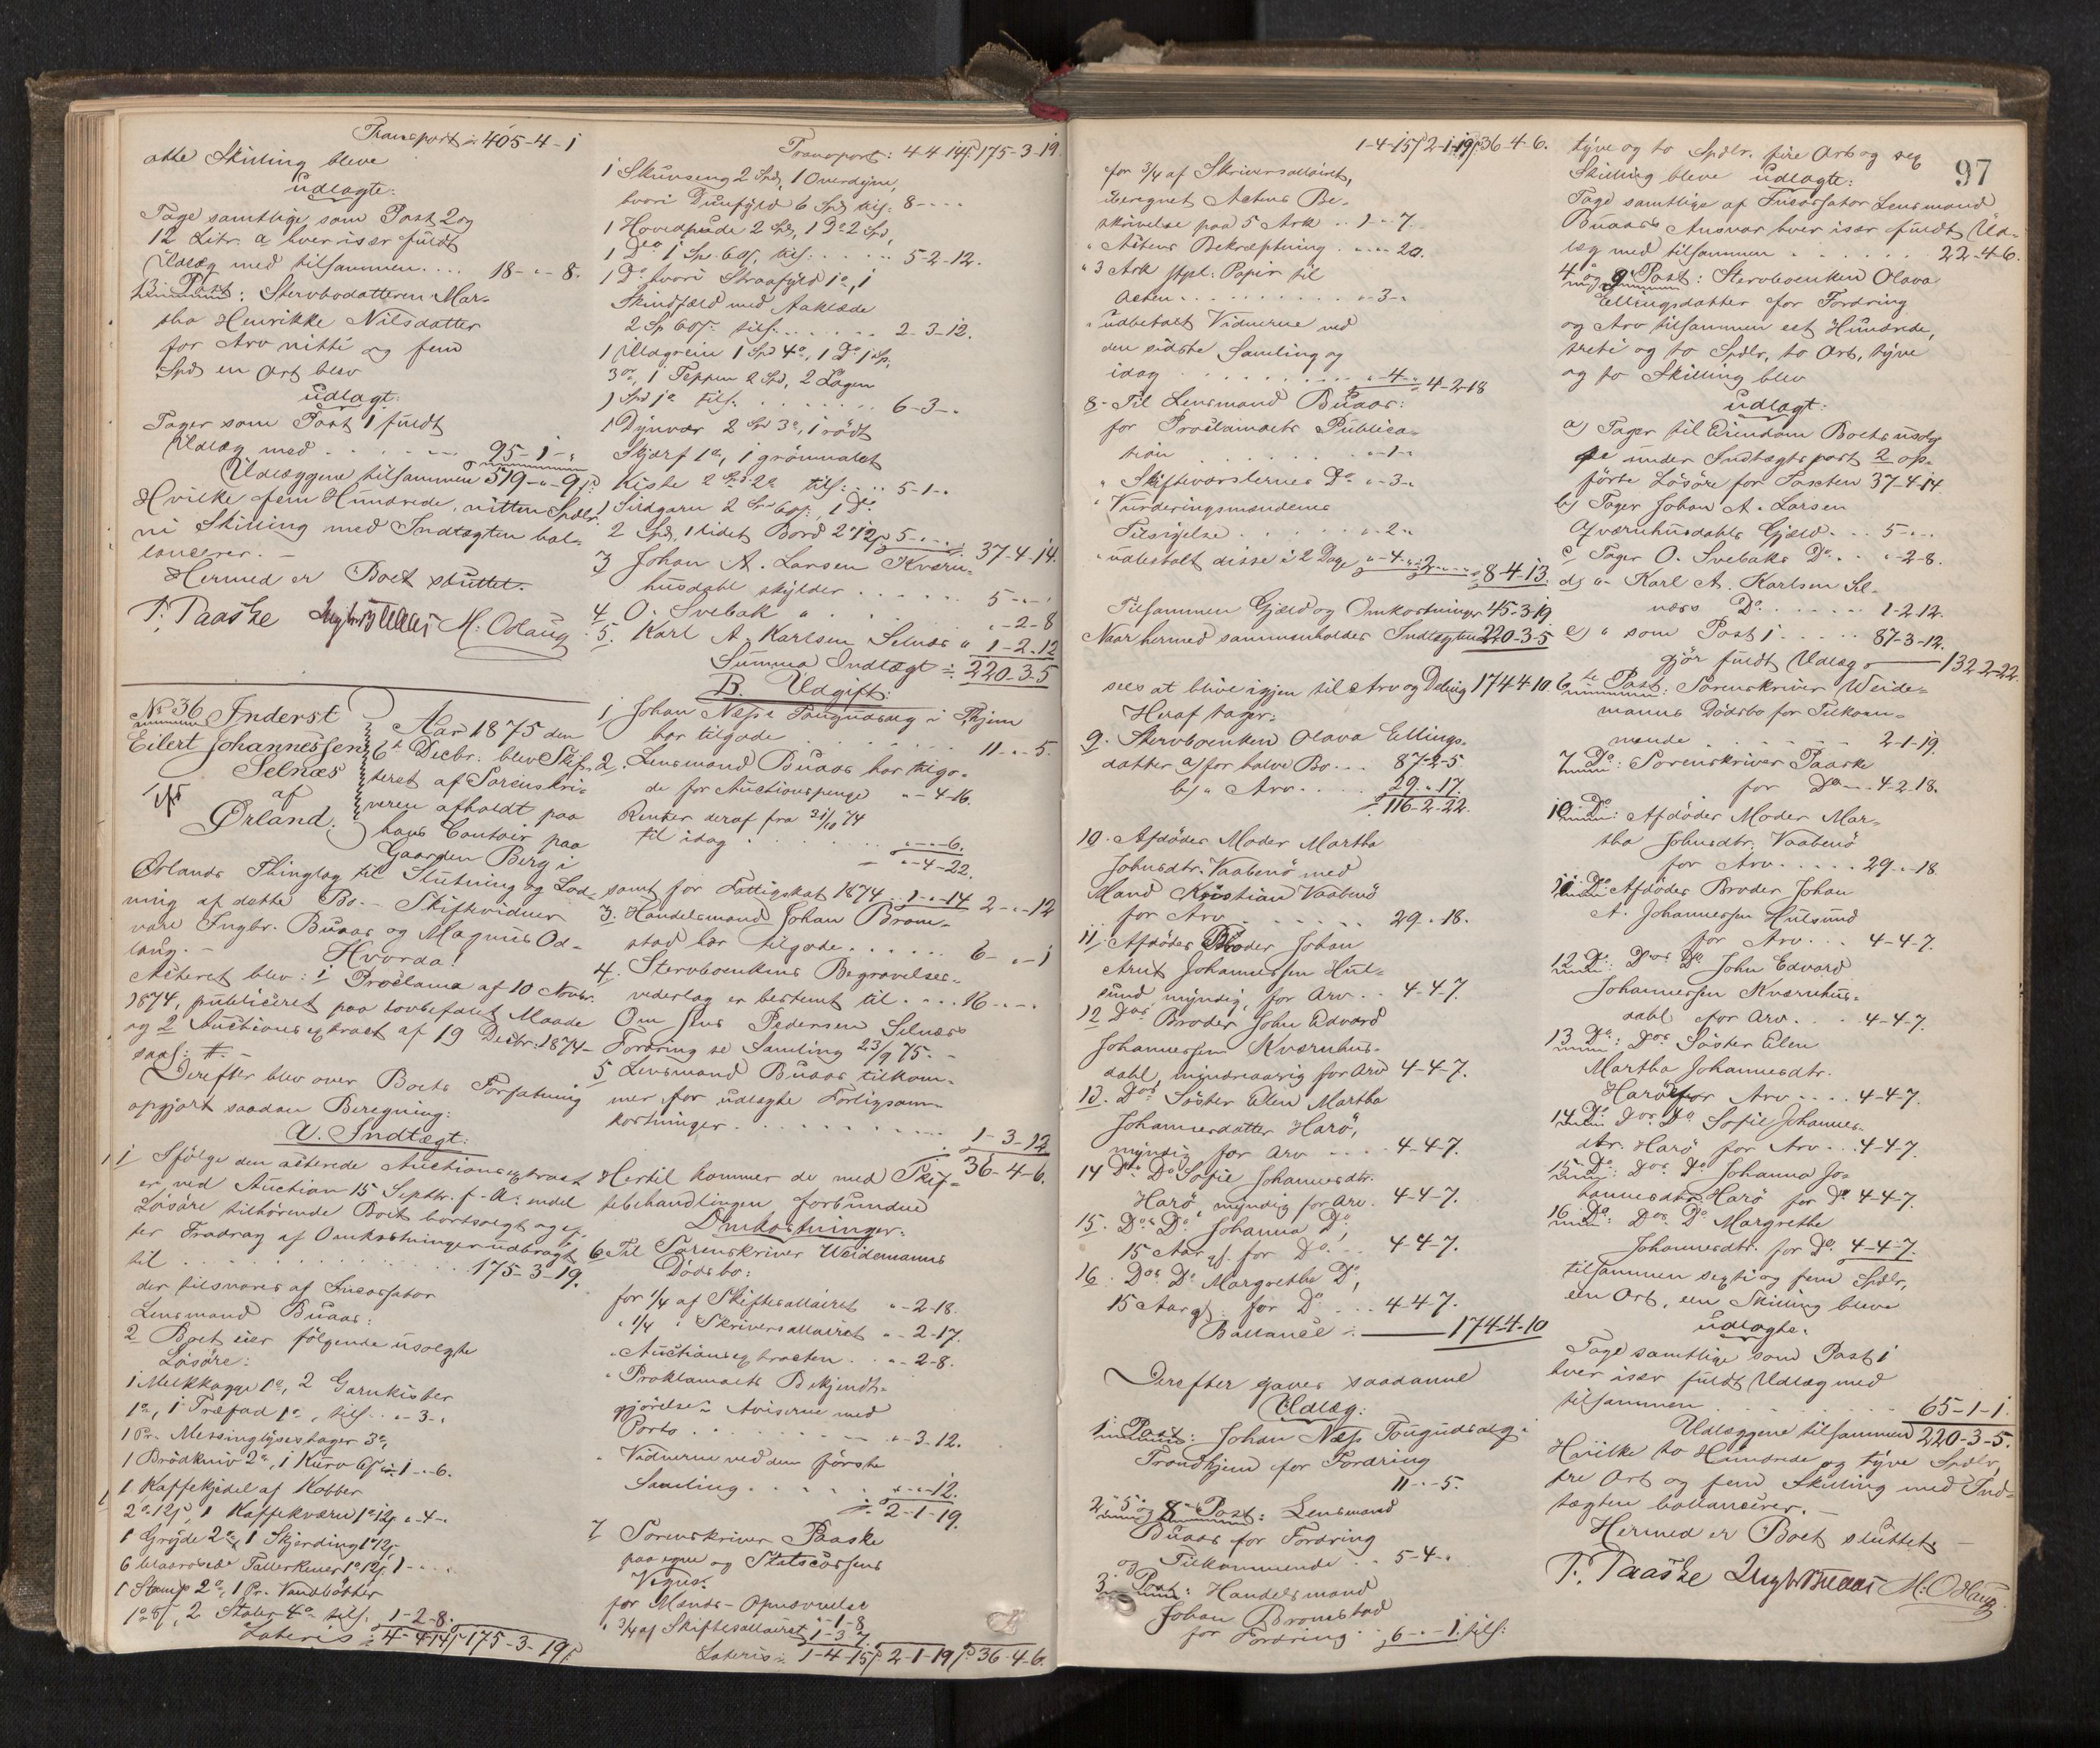 Transport ÷ 405-4-1
otte Skilling bleve
udlagte:
Tage samtlige som Post 2 og
12 Litr. a hver især fuldt
Udlæg med tilsammen.... 18-"-8.
13 Post: Stervbodatteren Mar-
tha Henrikke Nilsdatter
for Arv nitti og fem
Spd en Ort blev
udlagt:
Tager som Post 1 fuldt
Udlæg med ...... 95-1-"
Udlæggene tilsammen 519-"-9 s
Hvilke fem Hundrede, nitten Spdlr.
ni Skilling med Indtægten bal-
lancerer. -
Hermed er Boet sluttet.
T. Paaske Ingbr Buaas M. Odlaug
No 36 Inderst
Eilert Johannessen
Selnæs
af
Ørland.
Aar 1875 den
6te Decbr. blev Skif-
teret af Sorenskri-
veren afholdt paa
hans Contoir paa
Gaarden Berg i
Ørlands Thinglag til Slutning og Lod-
ning af dette Bo. - Skiftevidner
vare Ingbr. Buaas og Magnus Od-
laug. -
Hvorda!
Acteret blev: 1 Proclama af 10 Novbr.
1874, publiceret paa lovbefalet Maade
og 2 Auctionsextract af 19 Decbr. 1874-
saal: #. -
Derefter blev over Boets Forfatning
opgjort saadan Beregning:
A. Indtægt:
1 Ifølge den acterede Auctionsextract
er ved Auction 15 Septbr. f. A. endel
Løsøre tilhørende Boet bortsolgt og ef-
ter Fradrag af Omkostninger udbragt
til .......... 175-3-19.
der tilsvares af Incassator
Lensmand Buaas:
2 Boet eier følgende usolgte
Løsøre:
1 Melkkagge 1o, 2 Garnkister
1o, 1 Træfad 1o, tils. "-3-"
1 Pr. Messinglysestager 3o,
1 Brødkniv 2o, 1 Kurv 6s ÷ 1-"-6.
1 Kaffekjedel af Kobber
2o 12s, 1 Kaffekværn 1o 12s "-4-"
1 Gryde 2o, 1 Skjerding 1o 12s,
6 blaarosede Tallerkener 1o 12s 1-"-"
1 Stamp 2o, 1 Pr. Vandbøtter
1o 8s, 2 Stoler 4o tils. 1-2-8.
Lateris ÷ 4-4-14s 175-3-19s
Transport: 4-4-14s 175-3-19
1 Skunseng 2 Spd, 1 Overdyne,
hvori Dunfyld 6 Spd tils. 8-"-"
1 Hovedpude 2 Spd, 1 Do 2 Spd,
1 Do 1 Sp. 60s, tils: ..... 5-2-12.
1 Do hvori Straafyld 1o, 1
Skindfæld med Aaklæde
2 Sp 60s tils. ...... 2-3-12.
1 Uldgrein 1 Spd 4o, 1 Do 1 Sp,
3o, 1 Teppen 2 Spd, 2 Lagen
1 Spd 1o tils. ....... 6-3-"
1 Dynvar 2 Spd 3o, 1 rødt
Skjærf 1o, 1 grønmalet
Kiste 2 Spd 2o tils: ... 5-1-"
1 Sildgarn 2 Sp 60s, 1 Do
2 Spd, 1 lidet Bord 2o 12s 5-"-" 37-4-14.
3 Johan A. Larsen Kværn-
husdahl skylder ...... 5-"-"
4. O. Svebak " ...... "-2-8
5. Karl A. Karlsen Selnæs " 1-2-12
Summa Indtægt ÷ 220-3-5
B. Udgift:
1 Johan Næss Tougudsalg i Thjem
har tilgode ....... 11-"-5.
2. Lensmand Buaas har tilgo-
de for Auctionspenge "-4-16.
Renter deraf fra 31/10 74
til idag ....... "-"-6.
"-4-22.
samt for Fattigskat 1874 1-"-14 2-"-12
3. Handelsmand Johan Brom-
stad har tilgode...... 6-"-1
4. Stervboenkens Begravelses-
vederlag er bestemt til .... 16-"-"
Om Jens Pedersen Selnæs
Fordring se Samling 23/9 75. -
5 Lensmand Buaas tilkom-
mer for udlagte Forligsom-
kostninger. ......... 1-3-12
÷ 36-4-6.
Hertil kommer de med Skif-
tebehandlingen forbundne
Omkostninger.
6 Til Sorenskriver Weidemanns
Dødsbo:
for 1/4 af Skiftesallairet "-2-18.
" 1/4 " Skriversallairet "-2-17.
" Auctionsextracten .. "-2-8.
" Proklamaets Bekjendt-
gjørelse i Aviserne med
Porto ........ "-3-12.
" Vidnerne ved den første
Samling...... "-"-12.
÷ 2-1-19.
7 Sorenskriver Paaske
paa egne og Statscassens
Vegne:
for Mands-Opnævnelse
"-1-8
" 3/4 af Skiftesallairet 1-3-7
Lateris ÷ 1-4-15s 2-1-19s 36-4-6.
1-4-15s 2-1-19s 36-4-6.
for 3/4 af Skriversallairet,
iberegnet Actens Be-
skrivelse paa 5 Ark .. 1-"-7.
" Actens Bekræftning .... 20.
" 3 Ark stpl. Papir til
Acten......... "-3-"
" udbetalt Vidnerne ved
den sidste Samling og
idag ......... "-4-" 4-2-18
8- Til Lensmand Buaas:
for Proclamaets Publica-
tion ......... "-1-"
" Skiftevarslernes Do "-3-"
" Vurderingsmændenes
Tilsigelse ...... "-2-"
" udbetalt disse i 2 Dage "-4-" 2-"-" 8-4-13.
Tilsammen Gjæld og Omkostninger 45-3-19
Naar hermed sammenholdes Indtægten 220-3-5
sees at blive igjen til Arv og Deling 174-4-10.
Heraf tager:
9. Stervboenken Olava Ellings-
datter a) for halve Bo... 87-2-5.
b) " Arv..... 29-"-17.
÷ 116-2-22.
10. Afdødes Moder Martha
Johnsdtr. Vaabenö med
Mand Kristian Vaabenö
for Arv....... 29-"-18.
11. Afdødes Broder Johan
Arnt Johannessen Hul-
sund, myndig, for Arv.. 4-4-7.
12 Dos Broder John Edvard
Johannessen Kværnhus-
dahl, mindreaarig for Arv 4-4-7.
13. Dos Søster Elen Martha
Johannesdatter Harö,
myndig for Arv .... 4-4-7.
14 Dos Do Sofie Johannesdtr.
Harö, myndig for Arv. 4-4-7.
15. Dos Do Johanna Do,
15 Aar gl. for Do. .. 4-4-7.
16. Dos Do Margrethe Do,
15 Aar gl. for Do ... 4-4-7.
Ballance ÷ 174-4-10
Derefter gaves saadanne
Udlæg:
1. Post: Johan Næss Tougudsalg i
Trondhjem for Fordring
11-"-5.
2- 5 og 8- Post: Lensmand
Buaas for Fordring
og Tilkommende .. 5-4-"
3. Post: Handelsmand
Johan Bromstad
for Fordring.. 6-"-1. tils:
97
tyve og to Spdlr. fire Ort og sex
Skilling bleve udlagte:
Tage samtlige af Incassator Lensmand
Buaas's Ansvar hver især fuldt Ud-
læg med tilsammen ...... 22-4-6.
4 og 9 Post: Stervboenken Olava
Ellingsdatter for Fordring
og Arv tilsammen eet Hundrede,
treti og to Spdlr, to Ort, tyve
og to Skilling blev
udlagt:
a) Tager til Eiendom Boets usolg-
te under Indtægtspost 2 op-
førte Løsøre for Taxten 37-4-14
b) Tager Johan A. Larsen
Qværnhusdahls Gjæld... 5-"-"
c) Tager O. Svebaks Do... "-2-8.
d) "- Karl A. Karlsen Sel-
næss Do. ...... 1-2-12.
e) " som Post 1..... 87-3-12.
gjør fuldt Udlæg 132-2-22.
6te Post: Sorenskriver Weide-
manns Dødsbo for Tilkom-
mende ...... 2-1-19.
7 Do: Sorenskriver Paaske
for Do ... 4-2-18.
10 Do: Afdødes Moder Mar-
tha Johnsdtr. Vaabenö
for Arv..... 29-"-18.
11 Do: Afdødes Broder Johan
A. Johannessen Hulsund
for Arv... 4-4-7.
12 Do: Dos Do John Edvard
Johannessen Kværnhus-
dahl for Arv... 4-4-7.
13 Do: Dos Søster Elen
Martha Johannesdtr.
Harö for Arv.... 4-4-7.
14 Do: Dos Do Sofie Johannes-
dtr. Harö for Arv... 4-4-7.
15 Do: Dos Do Johanna Jo-
hannesdtr. Harö for Do 4-4-7.
16 Do: Dos Do Margrethe
Johannesdtr. for Do. 4-4-7.
tilsammen sexti og fem Spdlr,
een Ort, een Skilling bleve
udlagte:
Tage samtlige som Post 1
hver især fuldt Udlæg med
tilsammen ....... 65-1-1.
Udlæggene tilsammen 220-3-5.
Hvilke to Hundrede og tyve Spdlr,
tre Ort og fem Skilling med Ind-
tægten ballancerer.
Hermed er Boet sluttet -
T. Paaske Ingbr Buaas M. Odlaug